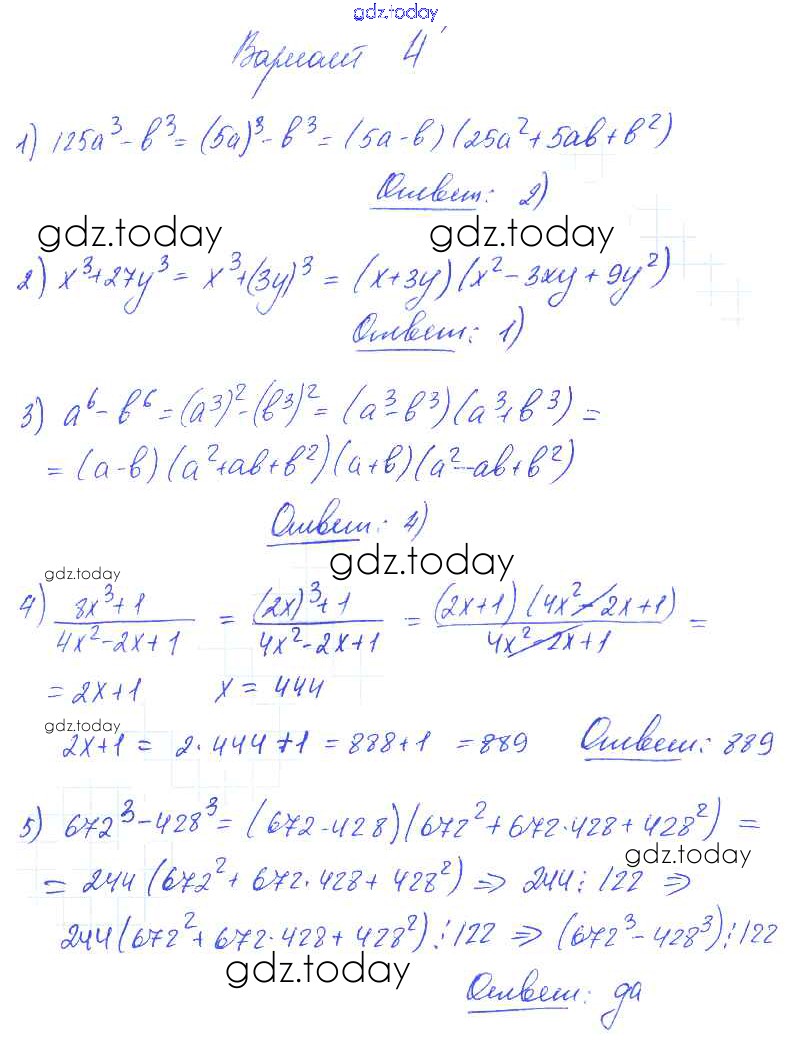 gdz.today
Вариант 4
1) 125a³ - b³ = (5a)³ - b³ = (5a - b)(25a² + 5ab + b²)
Ответ: 2)
gdz.today gdz.today
2) x³ + 27y³ = x³ + (3y)³ = (x + 3y)(x² - 3xy + 9y²)
Ответ: 1)
3) a⁶ - b⁶ = (a³)² - (b³)² = (a³ - b³)(a³ + b³) =
= (a - b)(a² + ab + b²)(a + b)(a² - ab + b²)
Ответ: 4)
gdz.today
gdz.today
4) (8x³ + 1)/(4x² - 2x + 1) = ((2x)³ + 1)/(4x² - 2x + 1) = ((2x + 1)(4x² - 2x + 1))/(4x² - 2x + 1) =
= 2x + 1 x = 444
gdz.today
2x + 1 = 2 · 444 + 1 = 888 + 1 = 889 Ответ: 889
5) 672³ - 428³ = (672 - 428)(672² + 672 · 428 + 428²) =
gdz.today
= 244(672² + 672 · 428 + 428²) ⇒ 244 ⋮ 122 ⇒
244(672² + 672 · 428 + 428²) ⋮ 122 ⇒ (672³ - 428³) ⋮ 122
gdz.today
Ответ: да